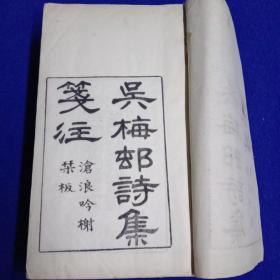 吳梅邨詩集
箋注
滄浪吟榭
栞板